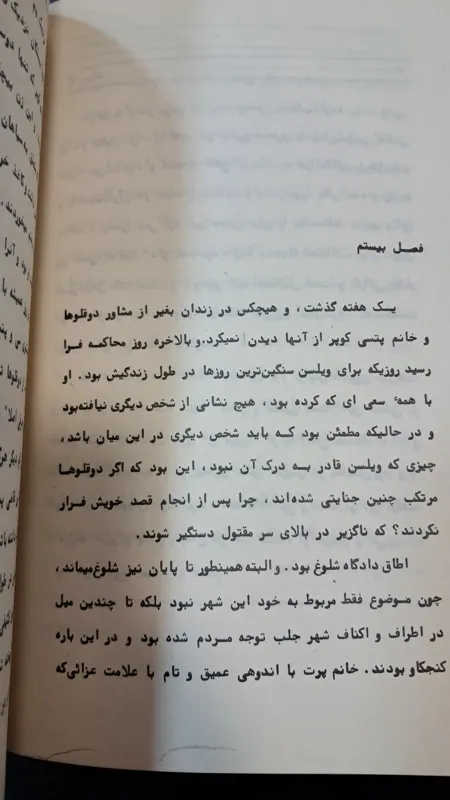 فصل بیستم
یک هفته گذشت ، و هیچکس در زندان بغیر از مشاور دوقلوها
و خانم پتسی کوپر از آنها دیدن نمیکرد.و بالاخره روز محاکمه فرا
رسید روزیکه برای ویلسن سنگین‌ترین روزها در طول زندگیش بود . او
با همهٔ سعی ای که کرده بود ، هیچ نشانی از شخص دیگری نیافته‌بود
و در حالیکه مطمئن بود کـه باید شخص دیگری در این میان باشد ،
چیزی که ویلسن قادر به درک آن نبود ، این بود که اگر دوقلوها
مرتکب چنین جنایتی شده‌اند ، چرا پس از انجام قصد خویش فرار
نکردند؟ که ناگزیر در بالای سر مقتول دستگیر شوند .
اطاق دادگاه شلوغ بود. و البته همینطور تا پایان نیز شلوغ‌میماند ،
چون موضوع فقط مربوط به خود این شهر نبود بلکه تا چندین میل
در اطراف و اکناف شهر جلب توجه مردم شده بود و در این باره
کنجکاو بودند . خانم پرت با اندوهی عمیق و تام با علامت عزائی‌که